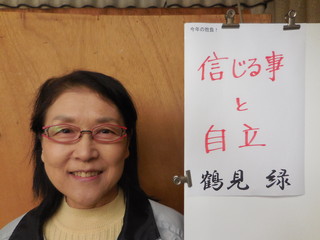 今年の抱負！
信じる事
と
自立
鶴見 緑